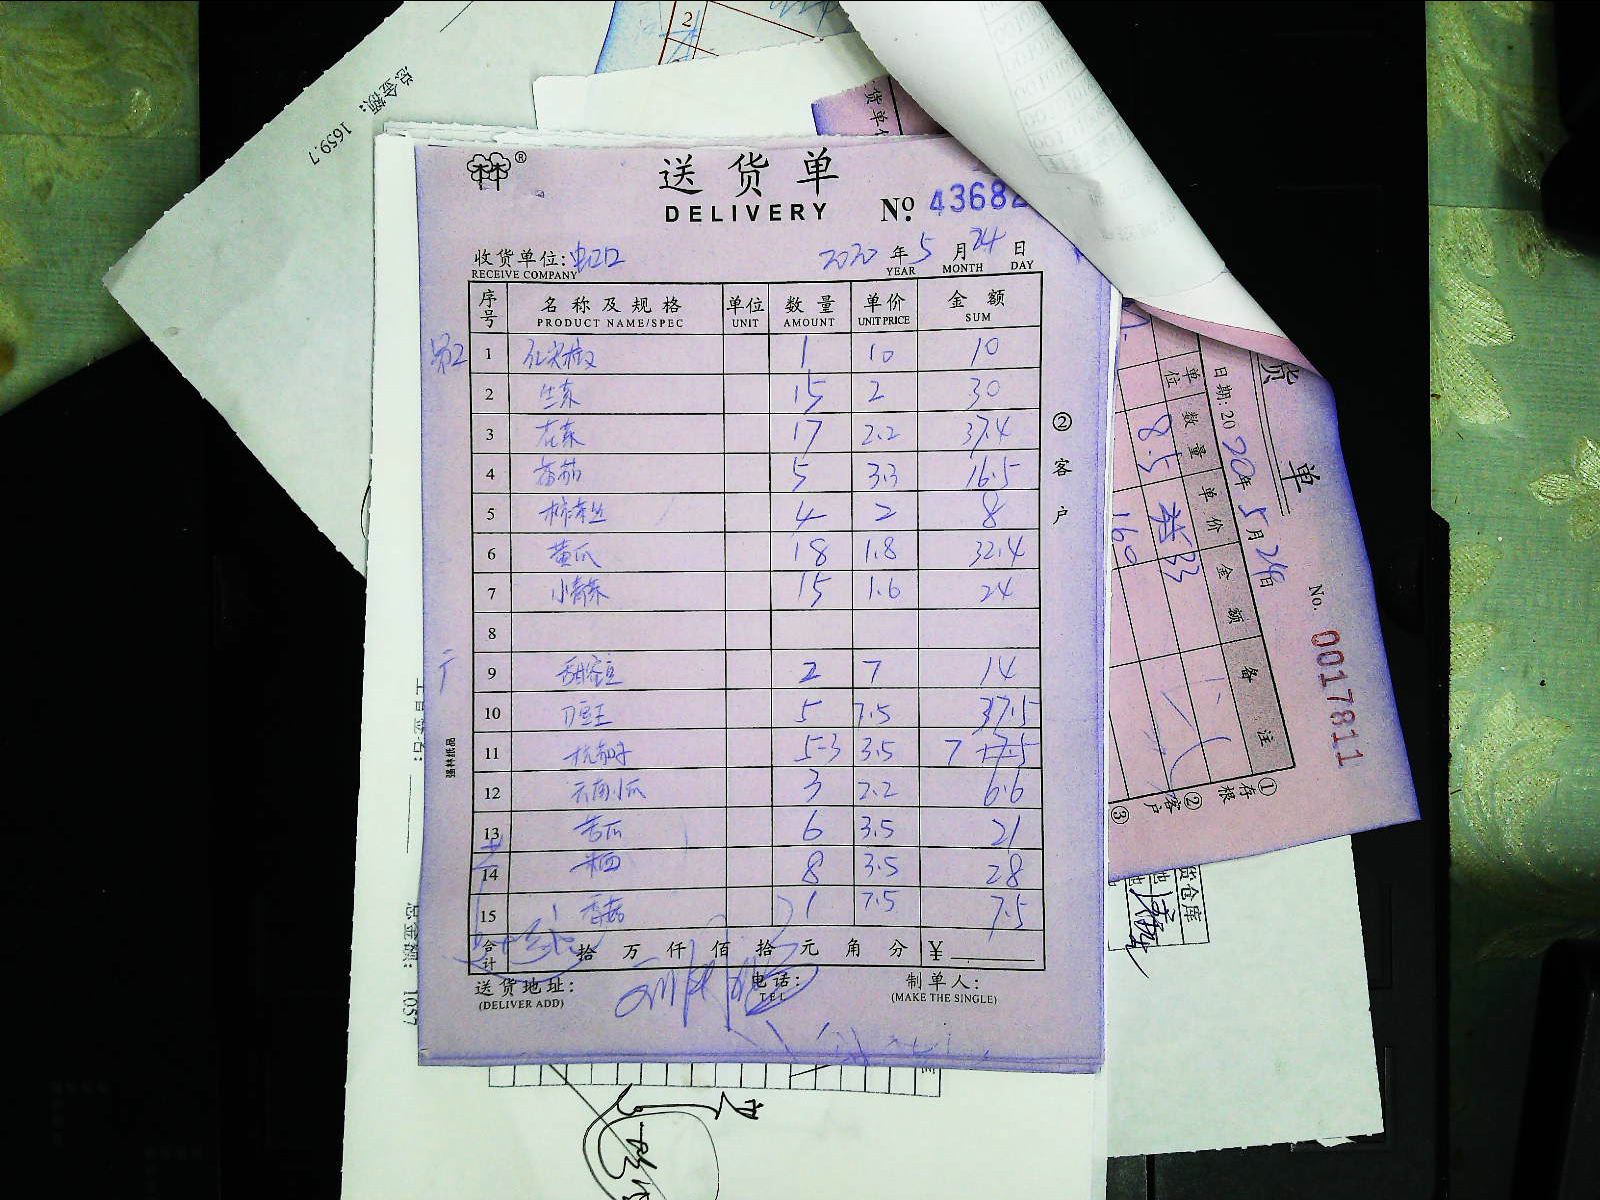 总金额： 1659.7
2
送货单
DELIVERY
No. 4368
收货单位:
RECEIVE COMPANY
2020 年 5 月 24 日
YEAR MONTH DAY
序号 名称及规格 单位 数量 单价 金额
PRODUCT NAME/SPEC UNIT AMOUNT UNIT PRICE SUM
1 红尖椒 1 10 10
2 生菜 15 2 30
3 花菜 17 2.2 37.4
4 番茄 5 3.3 16.5
5 4 2 8
6 黄瓜 18 1.8 32.4
7 小青菜 15 1.6 24
8
9 甜蜜豆 2 7 14
10 刀豆王 5 7.5 37.5
11 杭椒 5-3 3.5 7 17.5
12 云南小瓜 3 2.2 6.6
13 苦瓜 6 3.5 21
14 8 3.5 28
15 香菇 1 7.5 7.5
合计 拾 万 仟 佰 拾 元 角 分 ¥
送货地址:
(DELIVER ADD)
电话:
TEL
制单人:
(MAKE THE SINGLE)
② 客户
强林纸品
货单
日期: 2020年5月24日
No. 0017811
单位 数量 单价 金额 备注
8.5
160
①存根
②客户
③
货仓库
总金额： 1057